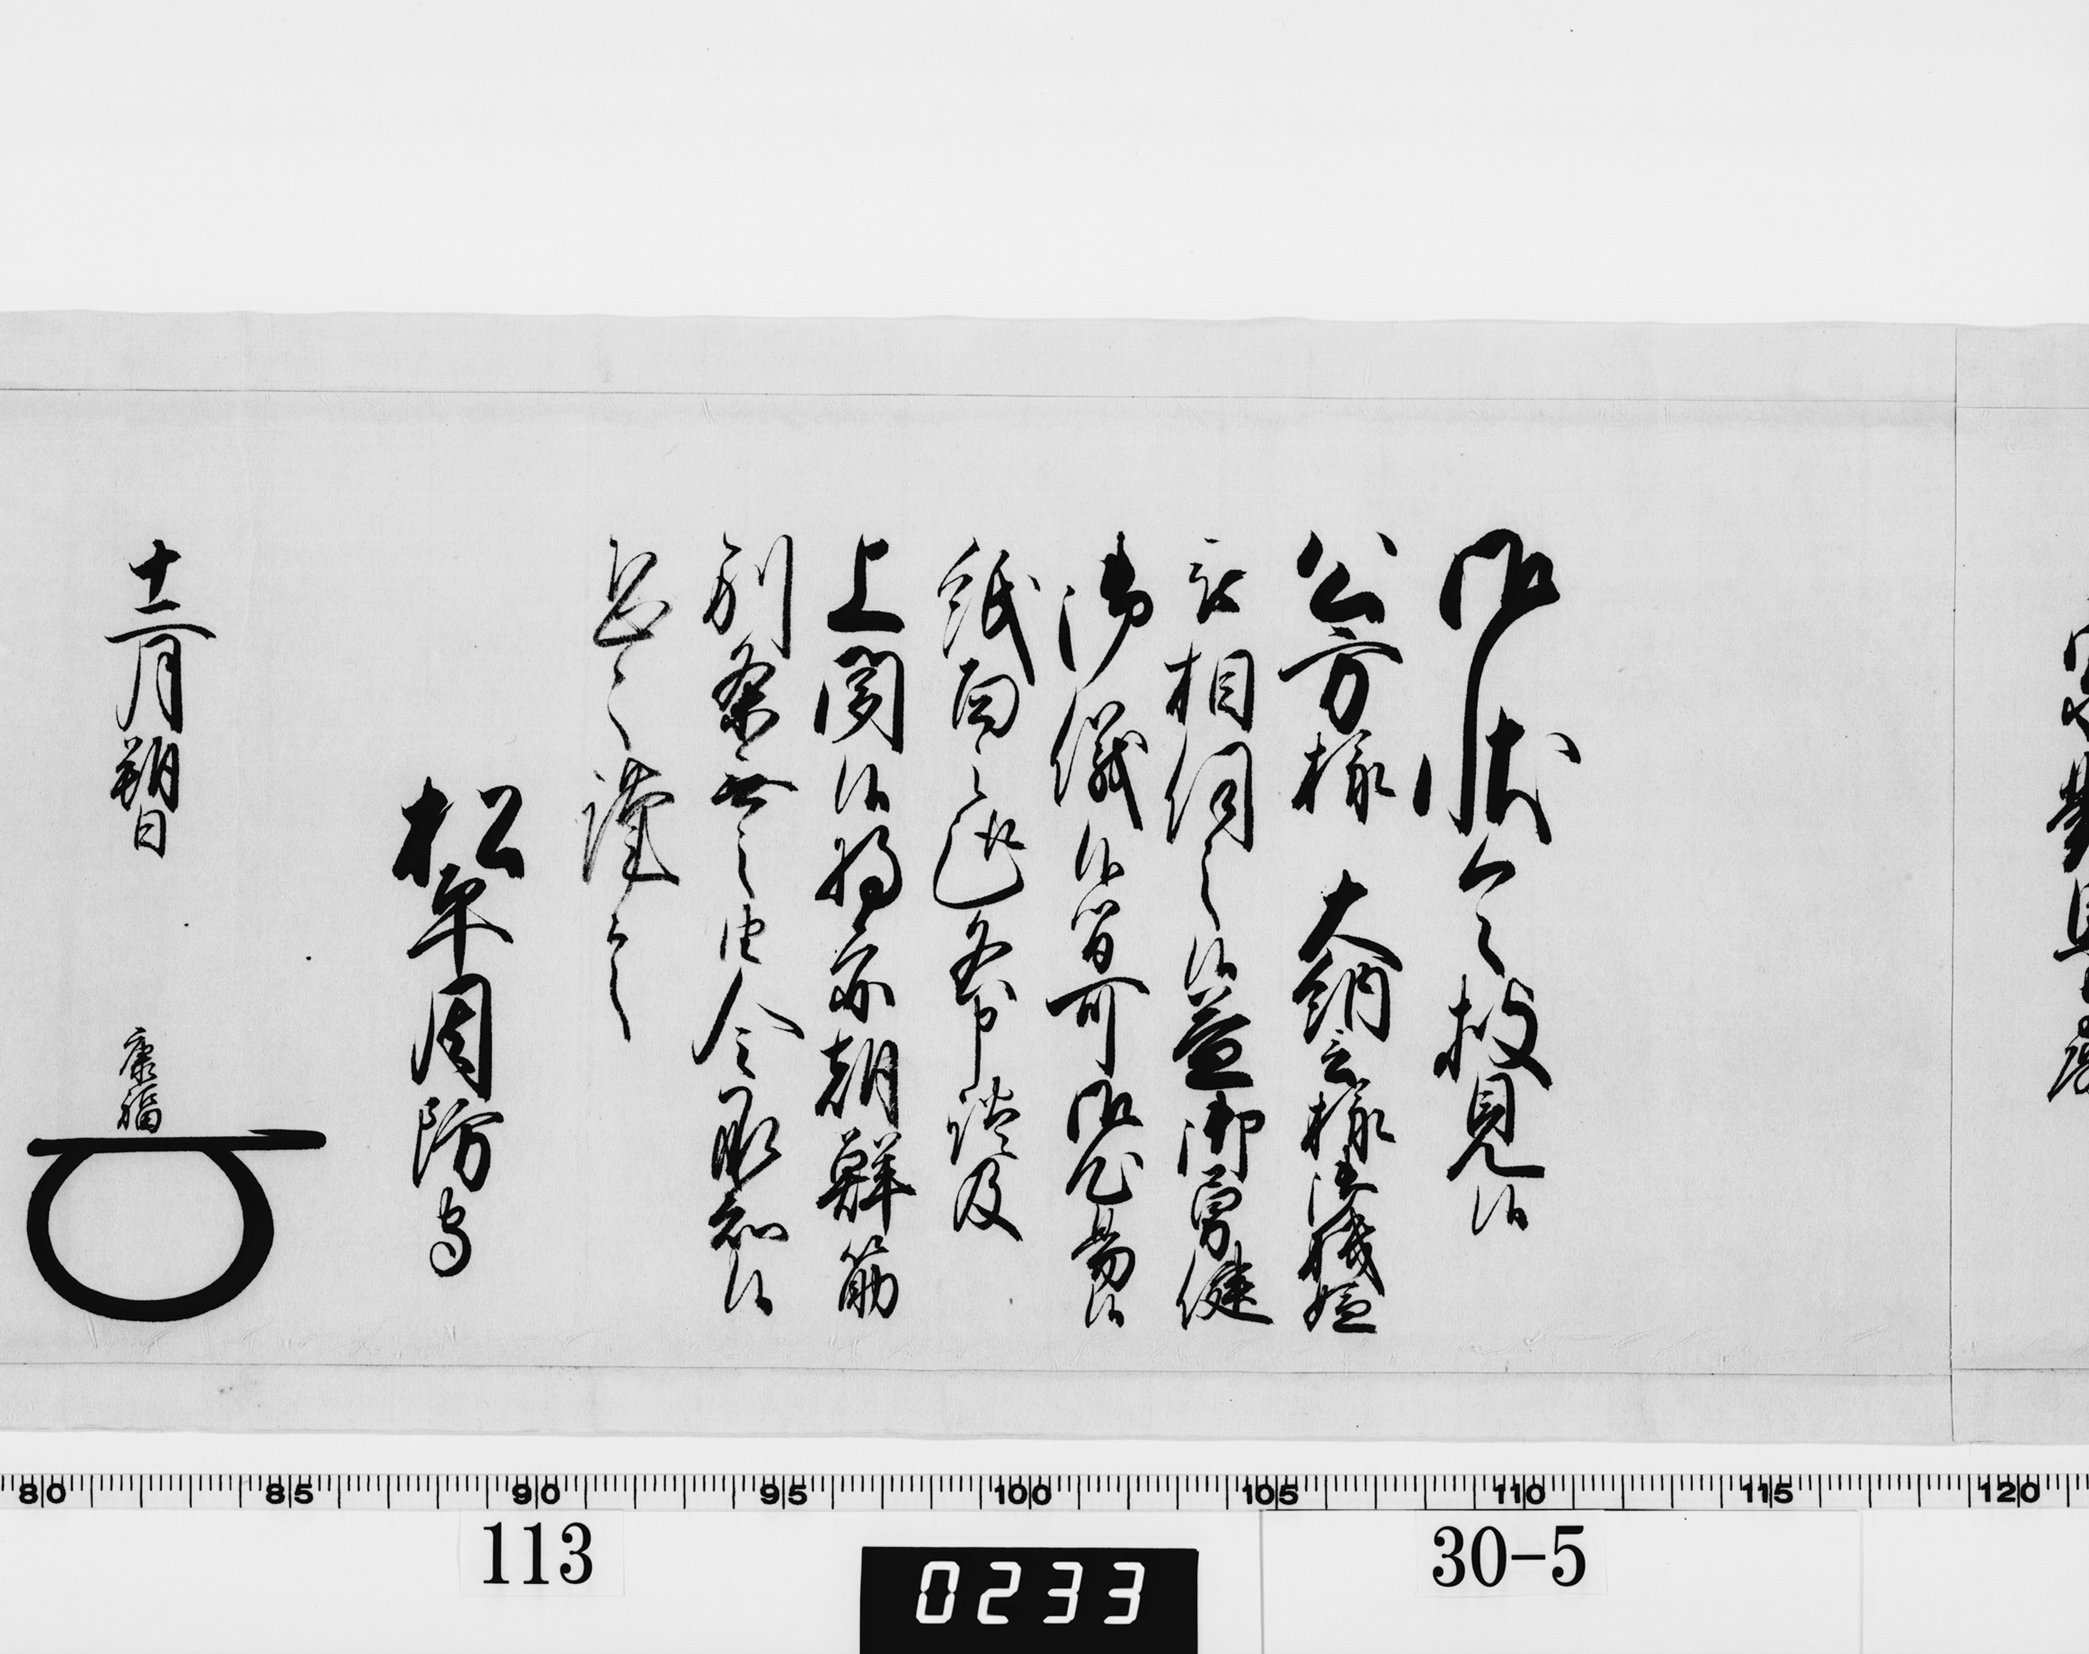 御状令披見候
公方様 大納言様御機嫌
被相伺之候益御勇健
御儀候間可御心易候
紙面之趣各申談及
上聞候将亦朝鮮筋
別条無之由令承知候
恐々謹言
松平周防守
十二月朔日
康福
80 85 90 95 100 105 110 115 120
113
0233
30-5